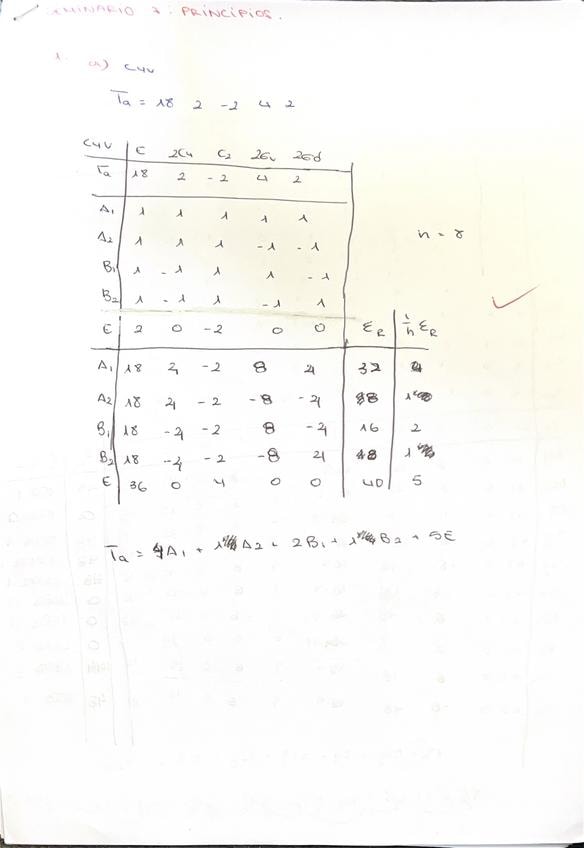 SEMINARIO 3: PRINCÍPIOS.
1. a) C4v
Γa = 18 2 -2 4 2
C4v E 2C4 C2 2σv 2σd
Γa 18 2 -2 4 2
A1 1 1 1 1 1
A2 1 1 1 -1 -1
n = 8
B1 1 -1 1 1 -1
B2 1 -1 1 -1 1
E 2 0 -2 0 0 ΣR 1/h ΣR
A1 18 4 -2 8 4 32 4
A2 18 4 -2 -8 -4 8 1
B1 18 -4 -2 8 -4 16 2
B2 18 -4 -2 -8 4 8 1
E 36 0 4 0 0 40 5
Γa = 4A1 + 1A2 + 2B1 + 1B2 + 5E